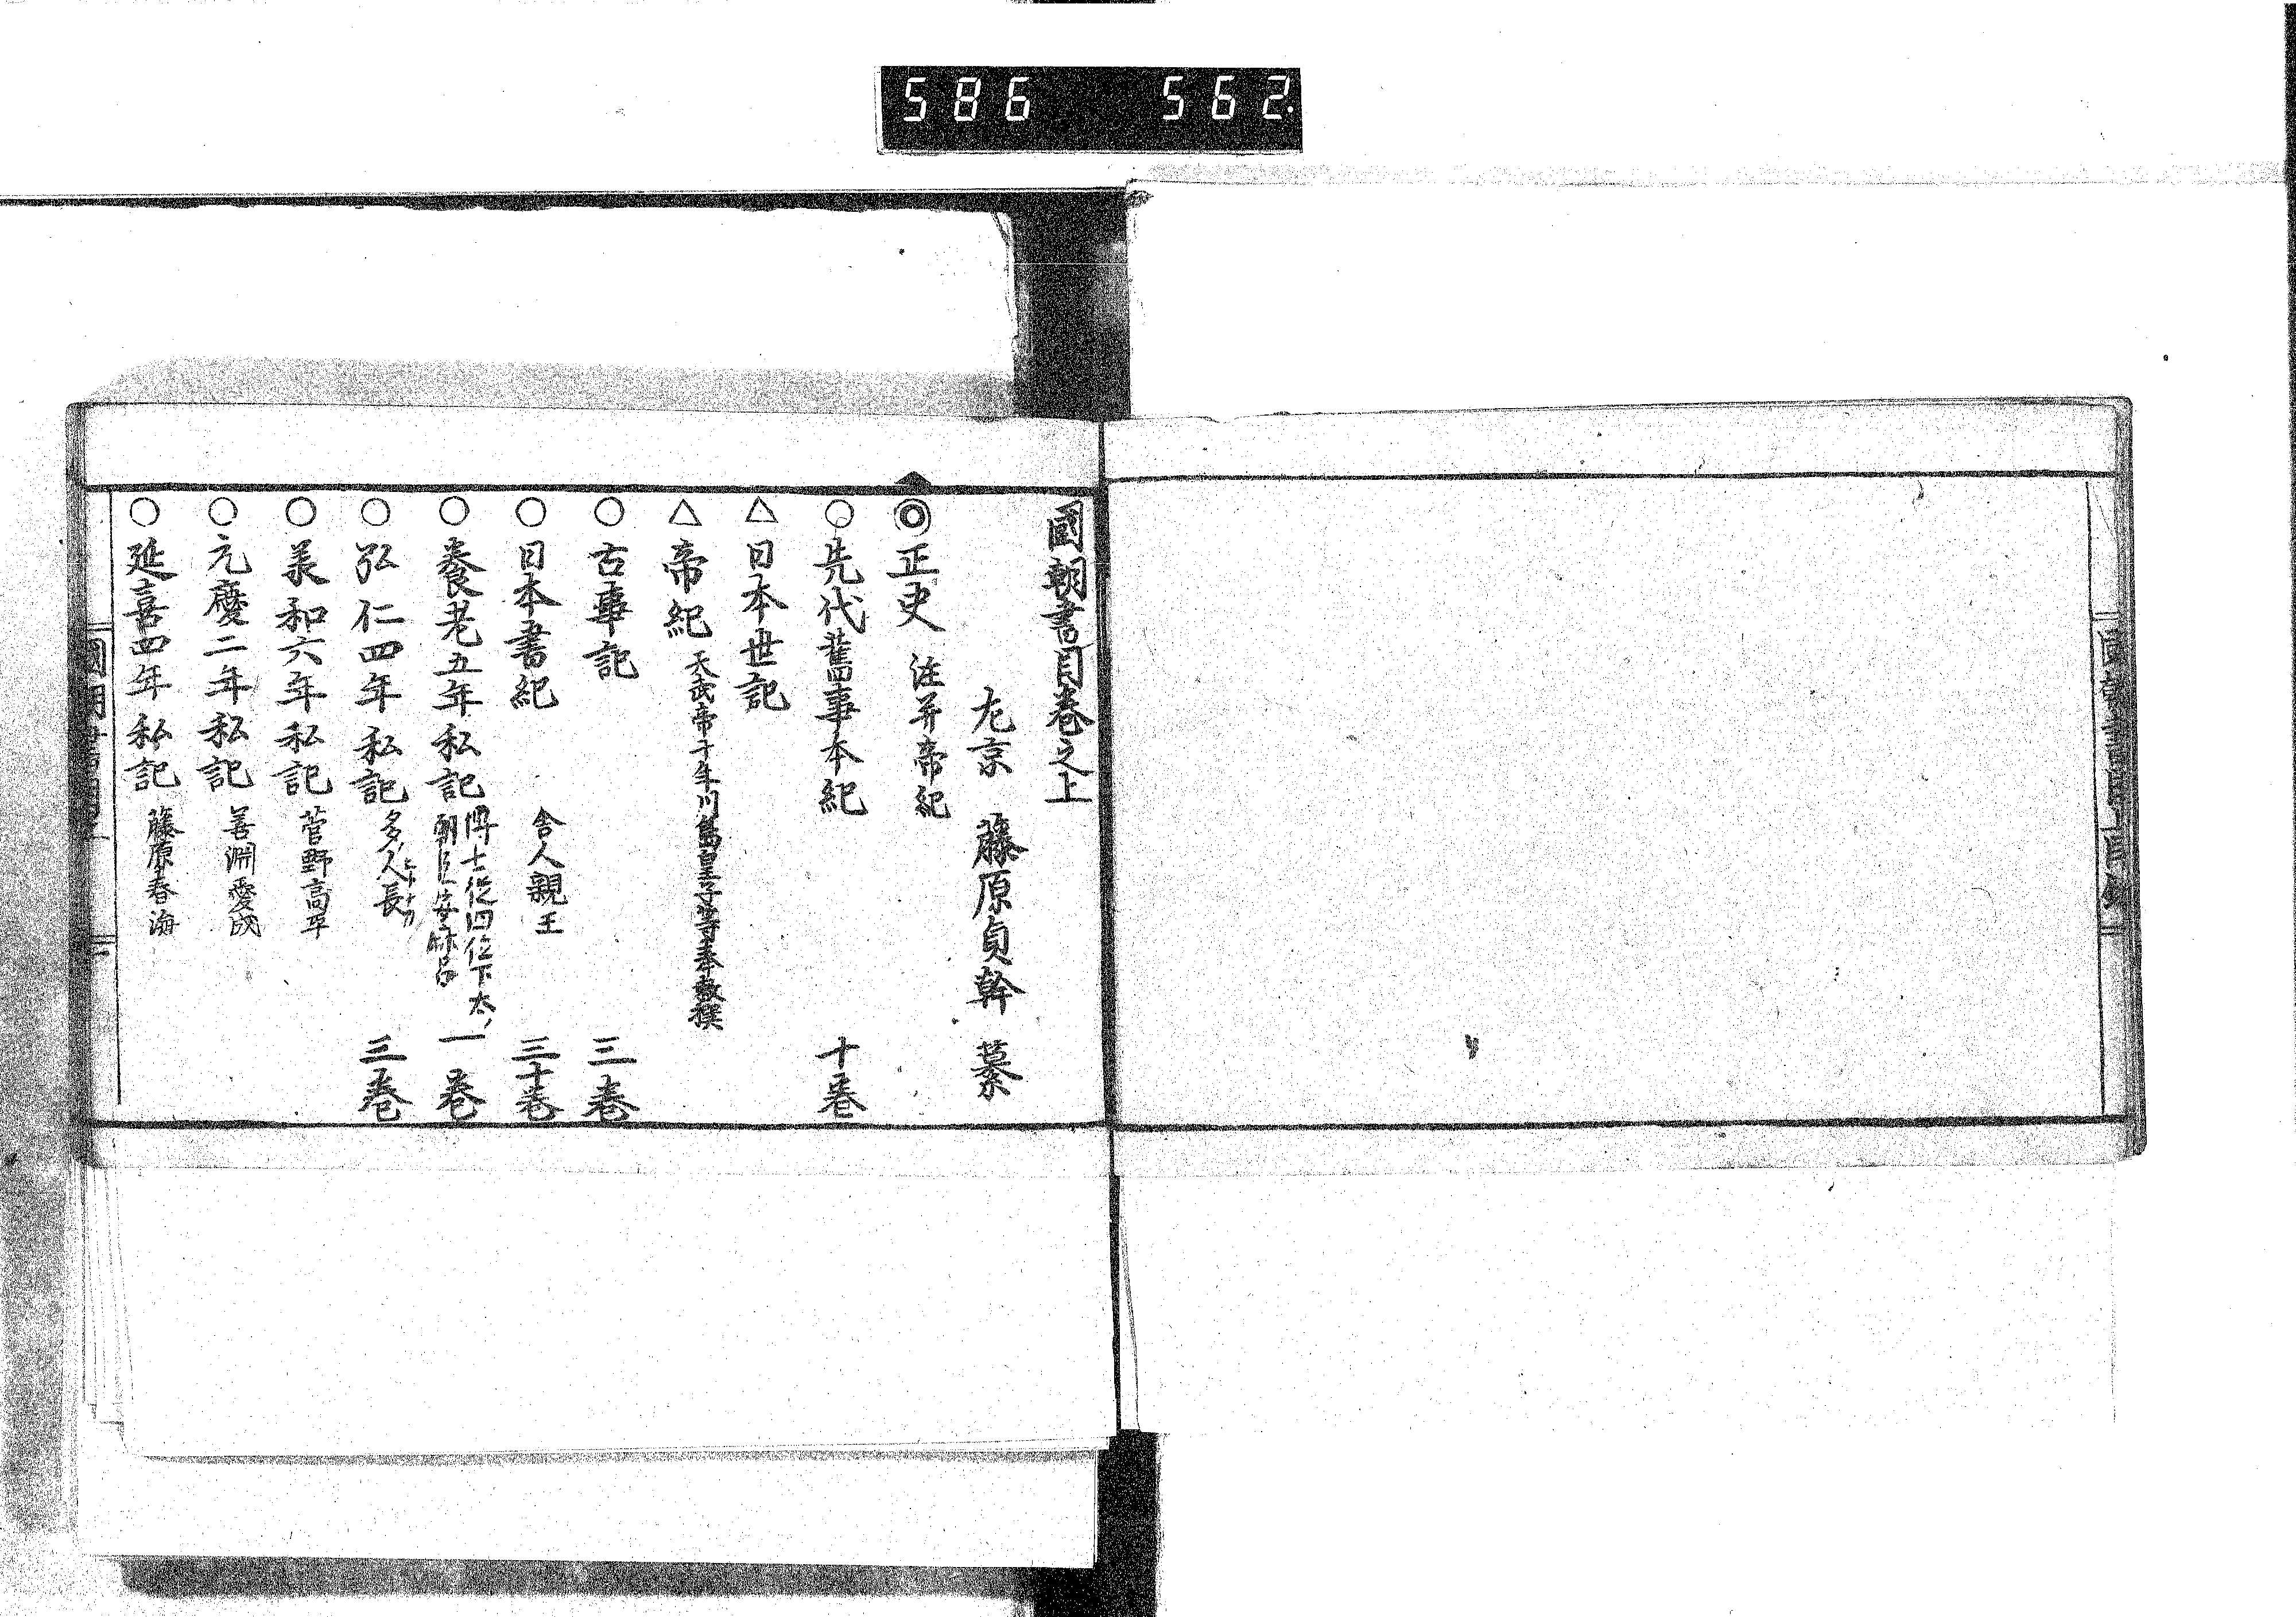 586 562.
國朝書目巻之上
左京 藤原貞幹 纂
◎正史 注并帝紀
○先代舊事本紀 十巻
△日本世記
△帝紀 天武帝十年川島皇子等奉敕撰
○古事記 三巻
○日本書紀 舎人親王 三十巻
○養老五年私記 博士従四位下太 朝臣安麻呂 一巻
○弘仁四年私記 多人長 三巻
○羕和六年私記 菅野高平
○元慶二年私記 善淵愛成
○延喜四年私記 藤原春海